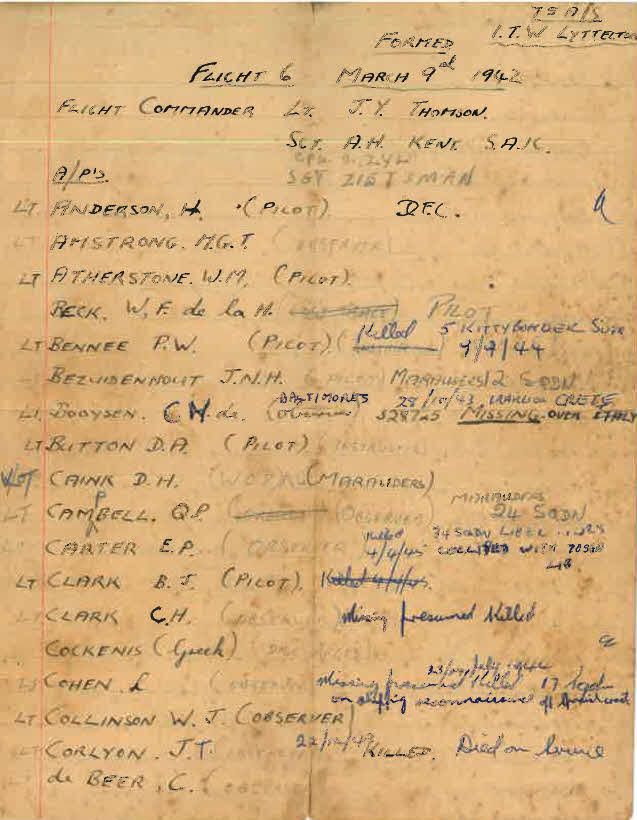 75 A/S
I.T.W LYTTELTON
FORMED
FLIGHT 6 MARCH 9th 1942
FLIGHT COMMANDER LT. J.Y. THOMSON.
SGT. A.H. KENT. S.A.K.
SGT ZIETSMAN
A/P'S
LT ANDERSON, H. (PILOT). D.F.C.
LT AMSTRONG. M.G.T. (OBSERVER)
LT ATHERSTONE. W.M. (PILOT).
BECK. W.F. de la H. PILOT
LT BENNEE P.W. (PILOT) (Killed 5 KITTYBOMBER SQDN
9/9/44
BEZUIDENHOUT J.N.H. (PILOT) MARAUDERS 12 SQDN
BALTIMORES 28/10/43 CRETE
LT. BOOYSEN. C.H. de. (Observer) S28725 MISSING OVER ITALY
LT BUTTON D.A. (PILOT)
W/OT CAINK D.H. (W.OP/AG) (MARAUDERS)
MARAUDERS
LT CAMPBELL. Q.P. (OBSERVER) 24 SQDN
Killed 34 SQDN
CARTER E.P. (OBSERVER 4/4/45 COLLIDED WITH
LT CLARK B.J. (PILOT). Killed 4/4/45.
LT CLARK C.H. (OBSERVER) Missing presumed Killed
COCKENIS (Greek) (DISCHARGED)
July
LT COHEN. L Missing presumed Killed 17 Sqdn
on shipping reconnaissance off
LT COLLINSON W.J. (OBSERVER)
LT CORLYON. J.T. 22/12/43 KILLED. Died on
de BEER, C.